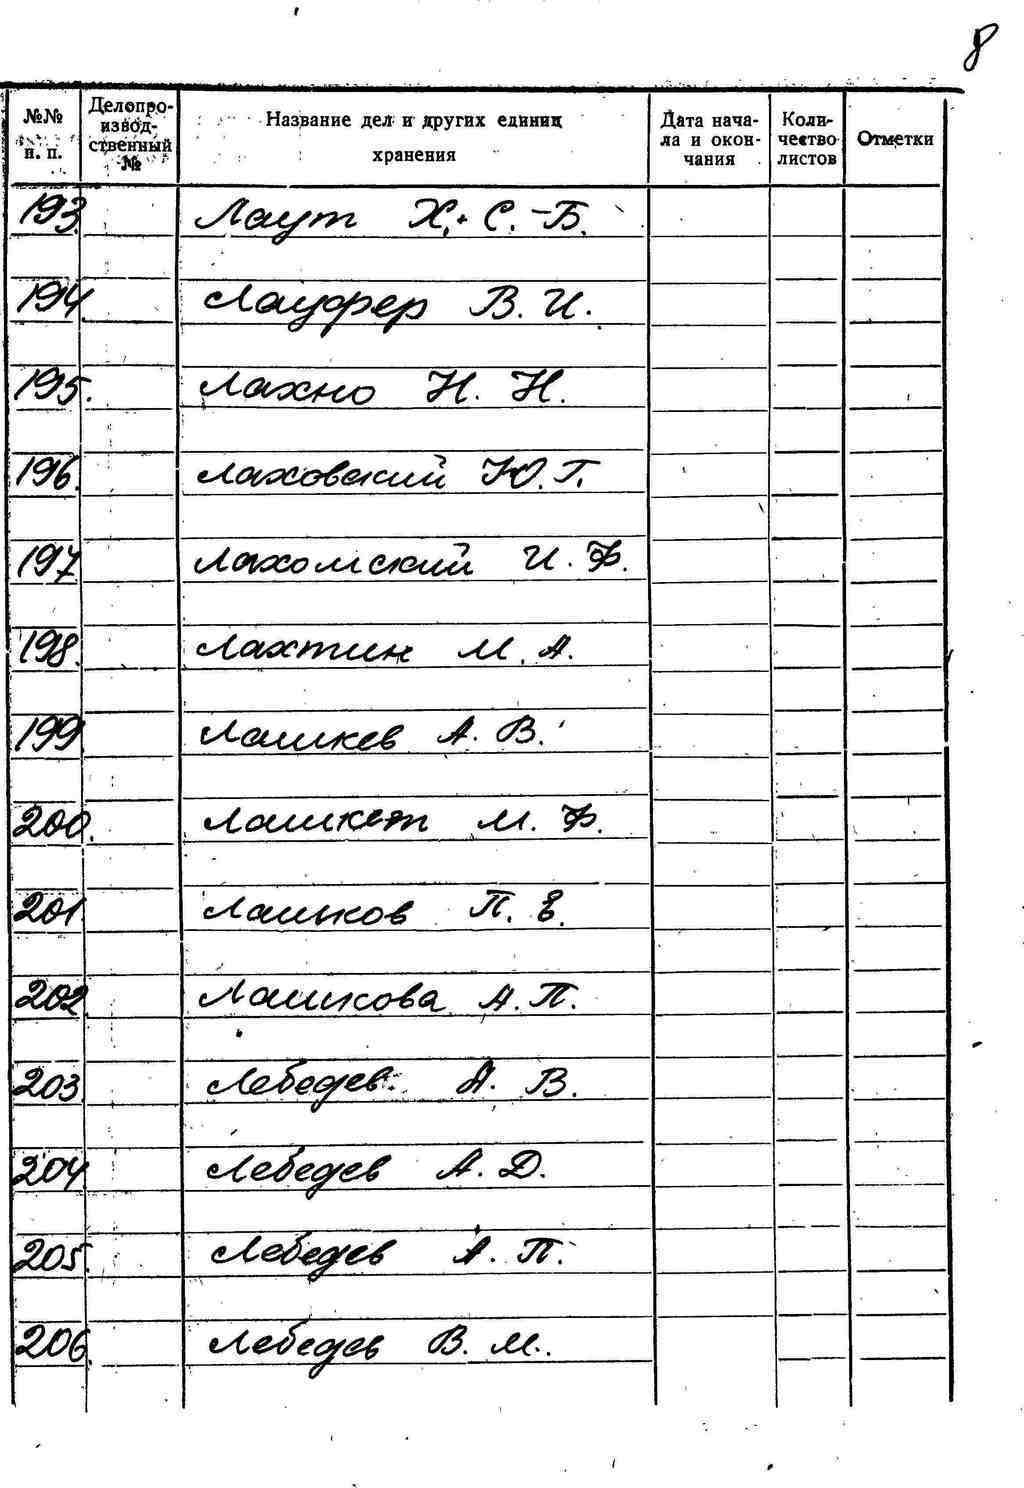 8
№№ п. п. Делопроизводственный № Название дел и других единиц хранения Дата начала и окончания Количество листов Отметки
193. Лаут Х.-С.-Б.
194. Лауфер В. И.
195. Лахно Н. Н.
196. Лаховский Ю. Г.
197. Лахомский И. Ф.
198. Лахтин М. А.
199. Лашкев А. В.
200. Лашкет М. Ф.
201. Лашков П. Е.
202. Лашкова А. П.
203. Лебедев А. В.
204. Лебедев А. Д.
205. Лебедев А. П.
206. Лебедев В. М.